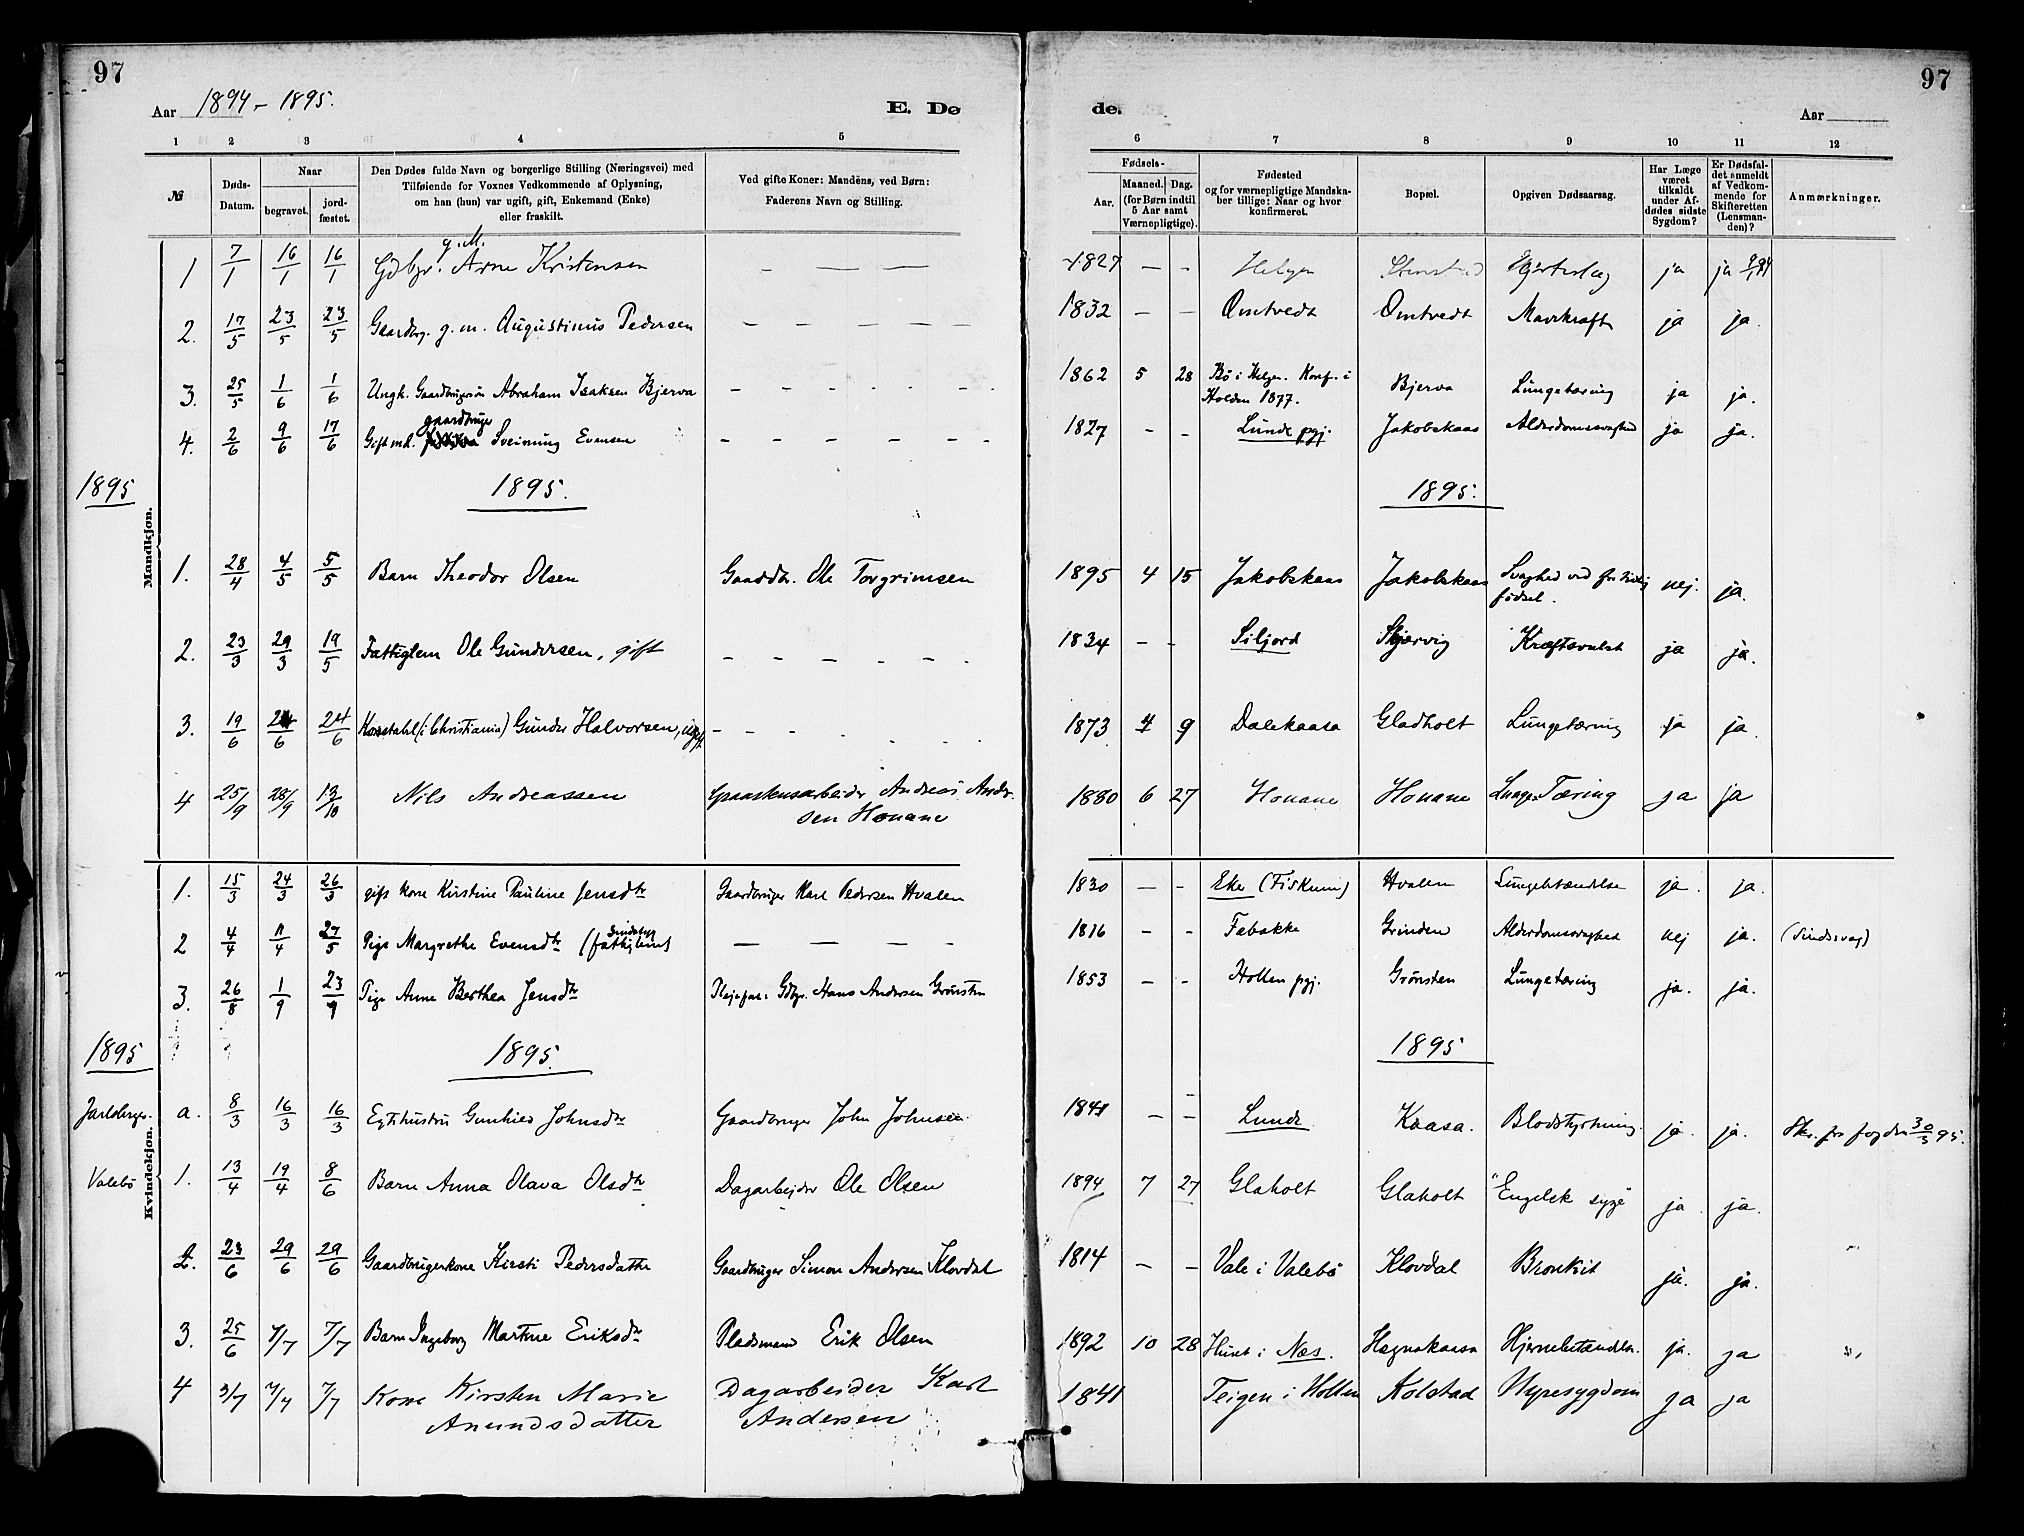 97
97
Aar 1894 - 1895.
E. Dø
de.
Aar
1 2 3 4 5 6 7 8 9 10 11 12
№
Døds-Datum.
Naar
begravet.
jord-fæstet.
Den Dødes fulde Navn og borgerlige Stilling (Næringsvei) med
Tilføiende for Voxnes Vedkommende af Oplysning,
om han (hun) var ugift, gift, Enkemand (Enke)
eller fraskilt.
Ved gifte Koner: Mandens, ved Børn:
Faderens Navn og Stilling.
Fødsels-
Aar.
Maaned. Dag.
(for Børn indtil
5 Aar samt
Værnepligtige).
Fødested
og for værnepligtige Mandska-
ber tillige: Naar og hvor
konfirmeret.
Bopæl.
Opgiven Dødsaarsag.
Har Læge
været
tilkaldt
under Af-
dødes sidste
Sygdom?
Er Dødsfal-
det anmeldt
af Vedkom-
mende for
Skifteretten
(Lensman-
den)?
Anmærkninger.
Mandkjøn.
1 7/1 16/1 16/1 Gdbgr. g.M. Arne Kristensen — — — 1827 — - Helgen Stenstad Hjerteslag ja ja 9/1 94
2. 17/5 23/5 23/5 Gaardbg. g. m. Augustinus Pedersen — — — — — 1832 — - Omtvedt Omtvedt Mavekræft ja ja.
3. 25/5 1/6 1/6 Ungk. Gaardbrugersøn Abraham Isaksen Bjerva — — — — — 1862 5 28 Bö i Helgen. Konf. i Holden 1877. Bjerva Lungetæring ja ja.
4. 2/6 9/6 17/6 Gift md. gaardbruger Sveinung Evensen — — — — — 1827 - - Lunde pgj. Jakobskaas Alderdomssvaghed ja ja.
1895 1895. 1895.
1. 28/4 4/5 5/5 Barn Theodor Olsen Gaardbr. Ole Torgrimsen 1895 4 15 Jakobskaas Jakobskaas Svaghed ved for tidlig födsel. nej. ja.
2. 23/3 29/3 19/5 Fattiglem Ole Gundersen, gift — — — — — 1834 - - Siljord Skjervig Kræftsvulst ja ja.
3. 19/6 24/6 24/6 (i Christiania) Gunder Halvorsen, ugift. — — — — — 1873 4 9 Dalekaasa Gladholt Lungetæring ja ja.
4 25/9 28/9 13/10 Nils Andreassen Graastensarbeider Andreas Andersen Honane 1880 6 27 Honane Honane Lunge Tæring ja ja
Kvindekjøn.
1. 15/3 24/3 26/3 gift kone Kirstine Pauline Jensdtr Gaardbruger Karl Pedersen Hvalen 1830 — - Eker (Fiskum) Hvalen Lungebetændelse ja. ja.
2 4/4 11/4 27/5 Pige Margrethe Evensdtr (sindssyg fattiglem) — — — — 1816 - - Fabakke Grinden Alderdomssvaghed nej ja. (Sindssvag)
3. 26/8 1/9 23/9 Pige Anne Berthea Jensdtr Plejefar: Gdbgr. Hans Andersen Grönsten 1853 - - Hollen pgj. Grönsten Lungetæring ja. ja.
1895 1895. 1895
Jarlsberges. a. 8/3 16/3 16/3 Egtehustru Gunhild Johnsdtr Gaardbruger John Johnsen 1841 — — Lunde Kaasa. Blodstyrtning. ja. ja. Skr. fra fogden 30/3 95.
Valebö 1. 13/4 19/4 8/6 Barn Anna Olava Olsdtr Dagarbejder Ole Olsen 1894 7 27 Glaholt Glaholt "Engelsk syge" ja ja.
2. 23/6 29/6 29/6 Gaardbrugerkone Kirsti Pedersdatter Gaardbruger Simon Andersen Klovdal 1814 — — Vale i Valebö Klovdal Bronkit ja. ja. "
3. 25/6 7/7 7/7 Barn Ingeborg Martine Eriksdtr Pladsmand Erik Olsen 1892 10 28 i Næs. Hegnakaasa Hjernebetændelse. ja. ja "
4 3/7 7/7 7/7 Kone Kirsten Marie Anundsdatter Dagarbeider Karl Andersen 1841 Teigen i Hollen Kolstad Nyresygdom ja ja